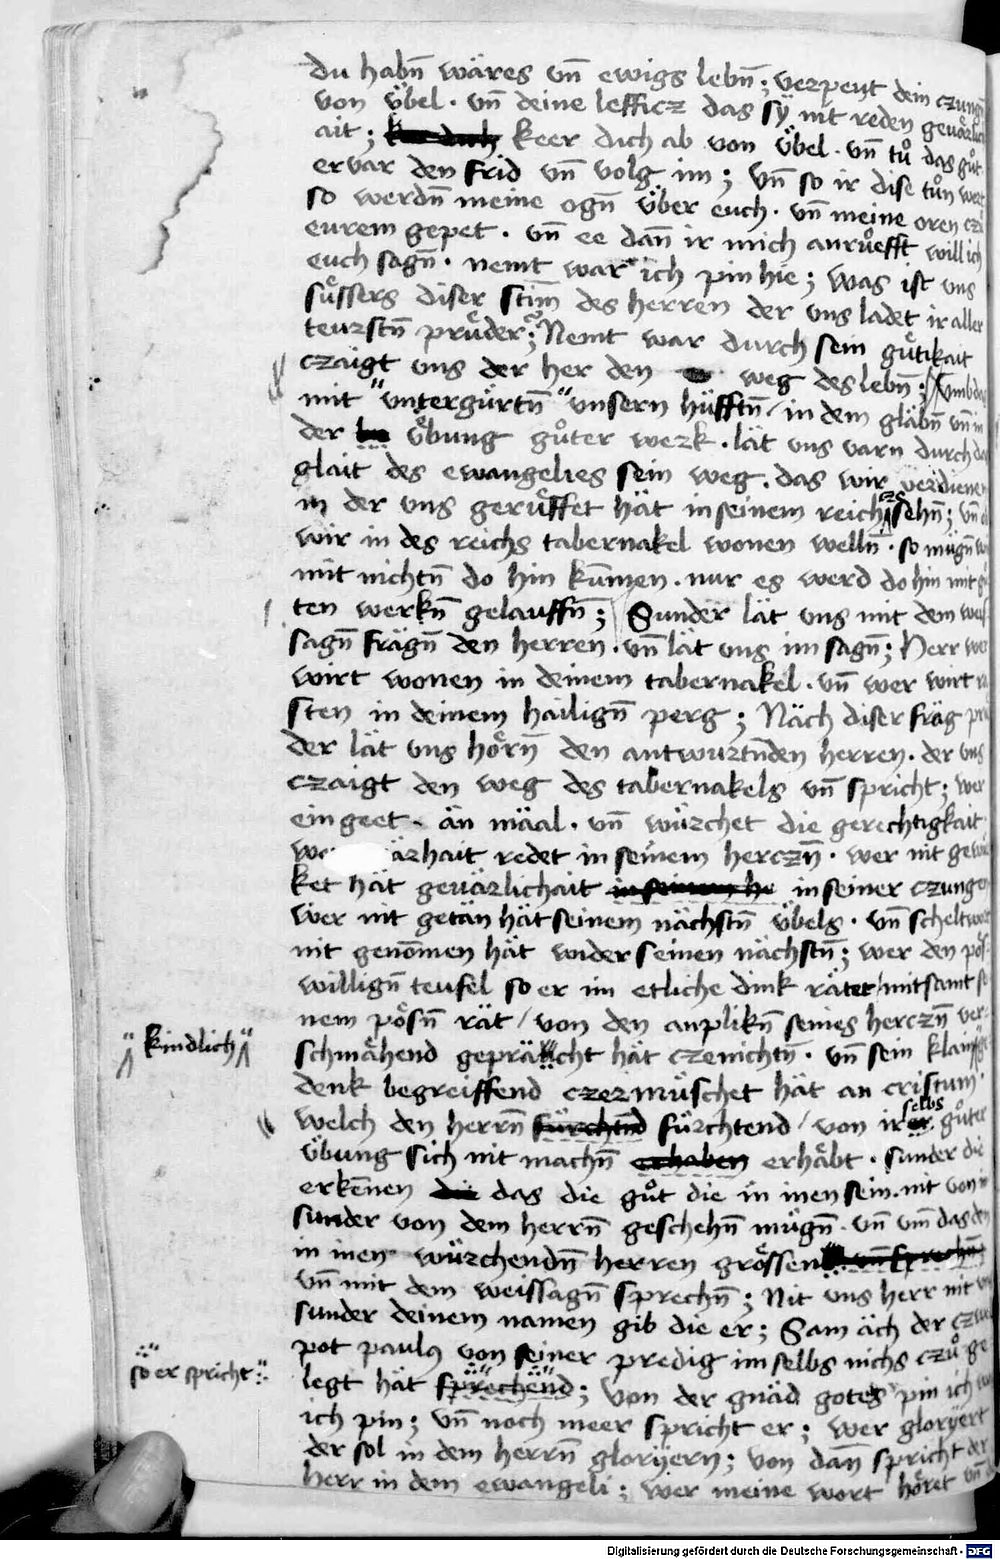 du habn̄ wäres vn̄ ewigs lebn̄; verpeut dein czungn̄
von v̈bel · vn̄ deine lefficz das sy nit reden gevärlich
ait; keer dich ab von v̈bel · vn̄ tů das gůt ·
ervar den frid vn̄ volg im; vn̄ so ir dise tůn
so werdn̄ meine ogn̄ v̈ber euch · vn̄ meine oren czů
eurem gepet · vn̄ ee dan̄ ir mich anrůefft will ich
euch sagn̄ · nemt war ich pin hie; was ist uns
sůssers diser stim̄ des herren der vns ladet ir aller
teurstn̄ průder; Nemt war durch sein gůtikait
czaigt vns der her den weg des lebn̄; Vmb das
mit " vntergürtn̄ " vnsern hüfftn̄ / in dem gläbn̄ vn̄ in
der v̈bung gůter werk · lät vns varn durch das
glait des ewangelies sein weg · das wir verdienen
in der vns gerüffet hät in seinem reich cze sehn̄;
wir in des reichs tabernakel wonen welln̄ · so mügn̄ wir
mit nichtn̄ do hin kum̄en · nur es werd do hin mit gů
ten werkn̄ gelauffn̄; Sunder lät vns mit dem weis
sagn̄ frägn̄ den herren · vn̄ lät vns im sagn̄; Herr wer
wirt wonen in deinem tabernakel · vn̄ wer wirt ra
sten in deinem hailign̄ perg; Näch diser fräg prü
der lät vns hörn̄ den antwurtn̄den herren · der vns
czaigt den weg des tabernakels vn̄ spricht; wer
ein geet · än mäal · vn̄ würchet die gerechtigkait
ärhait redet in seinem herczn̄ · wer nit gewür
ket hät gevärlichait in seiner czungen
wer nit getän hät seinem nächstn̄ v̈bels · vn̄ scheltwort
nit genom̄en hät wider seinen nächstn̄; wer den pös
willign̄ teufel so er im etliche dink rätet / mitsamt sei
nem pösn̄ rät / von den anplikn̄ seines herczn̄ ver
" kindlich "
schmähend geprächt hät cze nichtn̄ · vn̄ sein klain ge
denk begreiffend czermüschet hät an cristum ·
welch den herrn̄ fürchtend / von irer selbs gůter
v̈bung sich nit machn̄ erhäbt · sunder die
erken̄en das die gůt die in inen sein · nit von in
sunder von dem herrn̄ geschehn̄ mügn̄ · vn̄ vm̄ das den
in inen würchendn̄ herren grössen
vn̄ mit dem weissagn̄ sprechn̄; Nit vns herr nit vns
sunder deinem namen gib die er; Sam äch der czwelf
pot paulus von seiner predig im selbs nichs czů ge
so er spricht
legt hät sprechend; von der gnäd gotes pin ich was
ich pin; vn̄ noch meer spricht er; wer gloryert
der sol in dem herrn̄ gloryern; von dan̄ spricht der
herr in dem ewangeli; wer meine wort höret vn̄
Digitalisierung gefördert durch die Deutsche Forschungsgemeinschaft - DFG